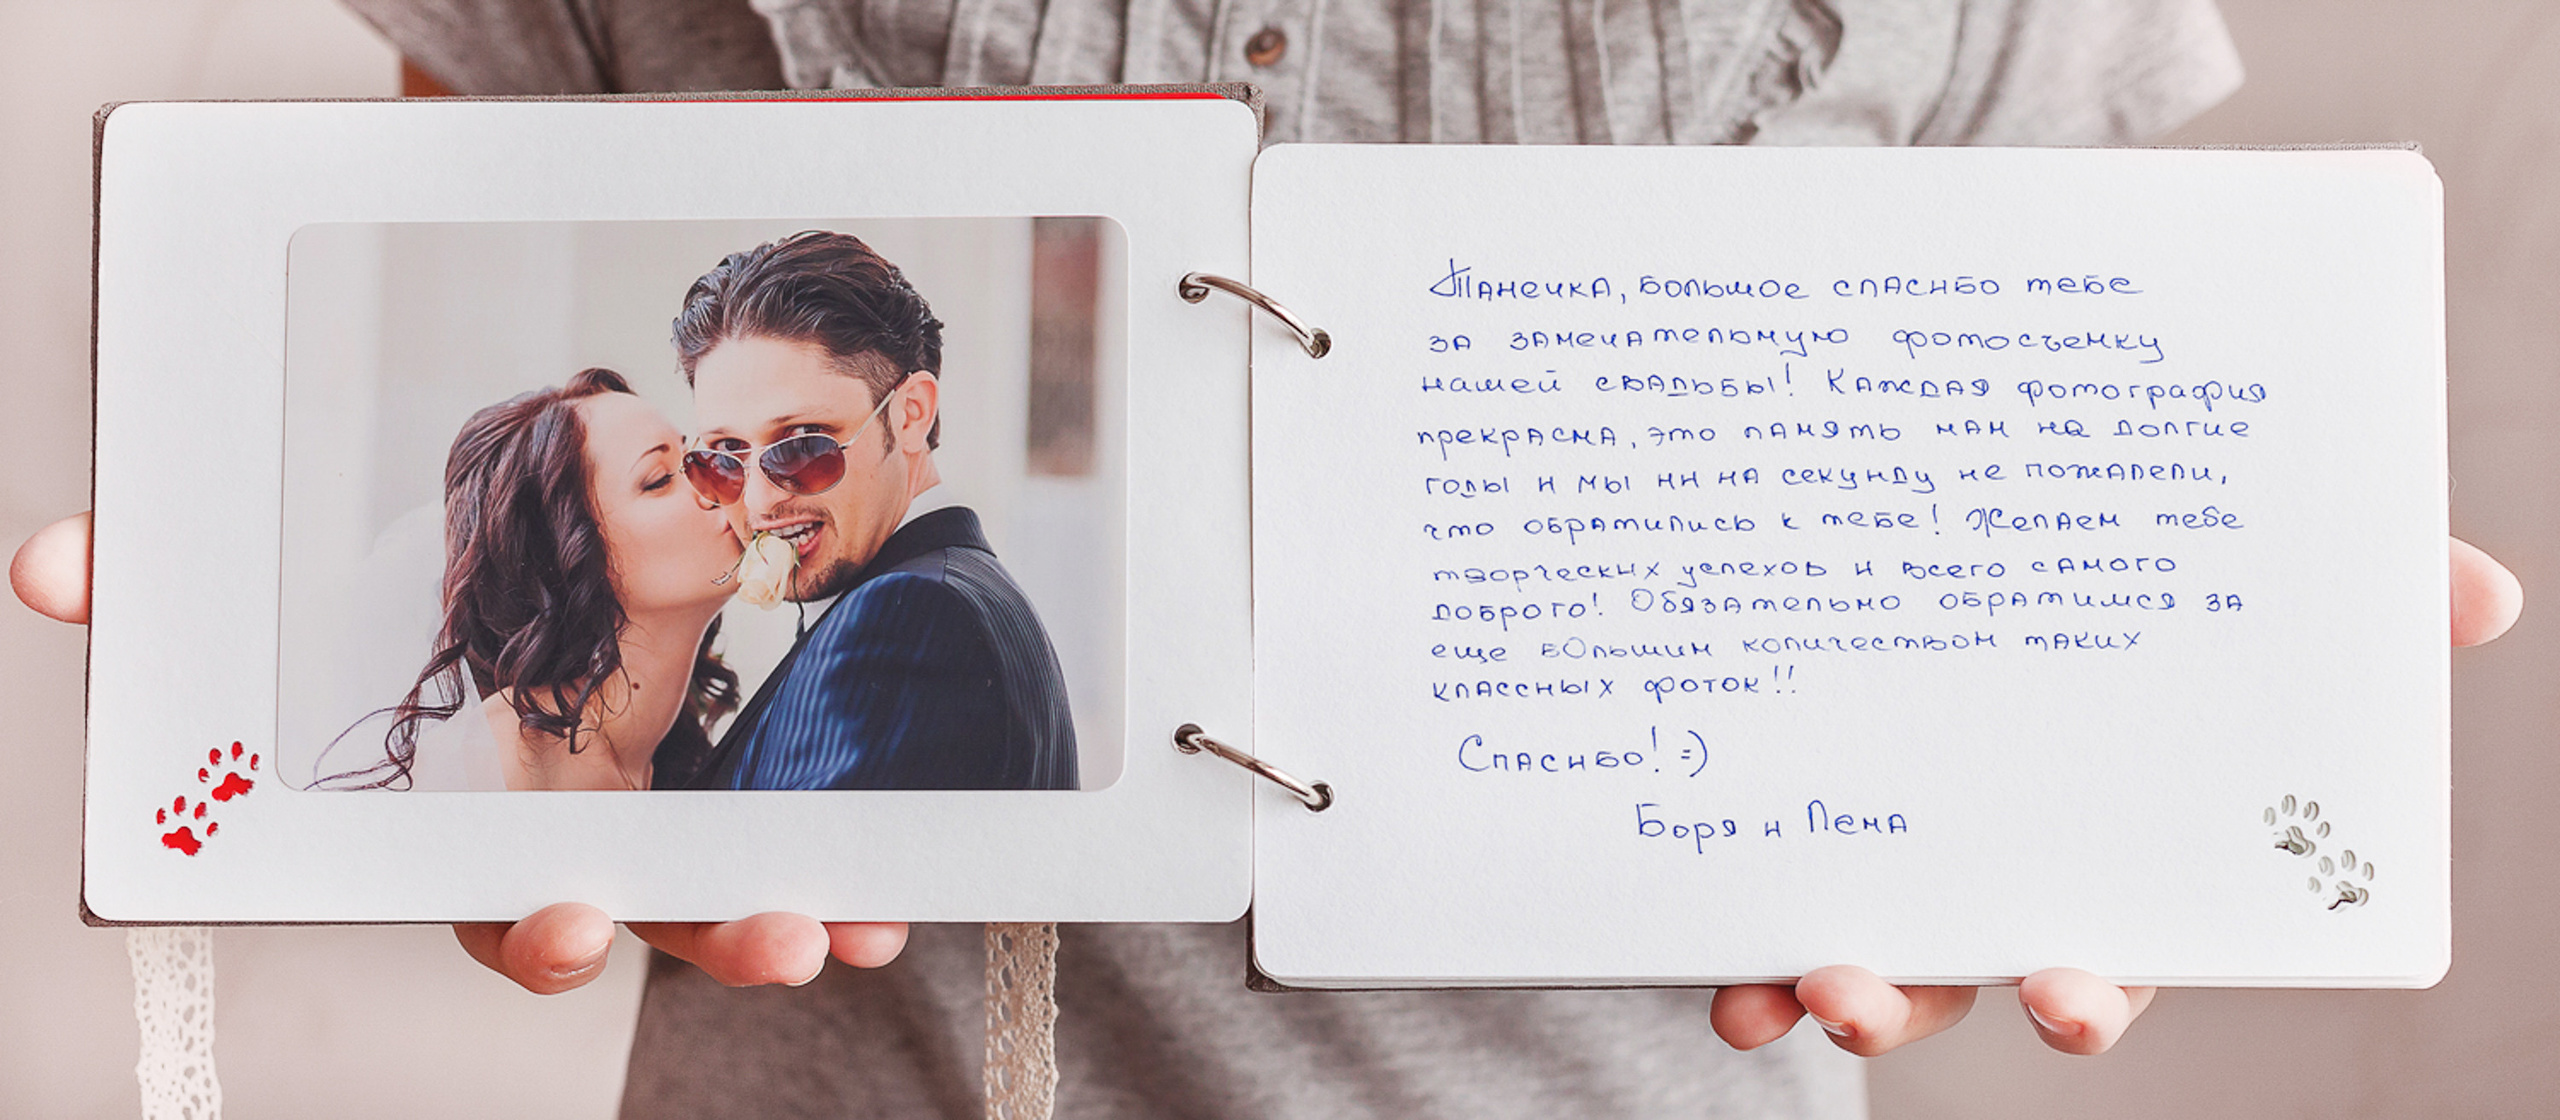 Танечка, большое спасибо тебе
за замечательную фотосъемку
нашей свадьбы! Каждая фотография
прекрасна, это память нам на долгие
годы и мы ни на секунду не пожалели,
что обратились к тебе! Желаем тебе
творческих успехов и всего самого
доброго! Обязательно обратимся за
еще бОльшим количеством таких
классных фоток!!
Спасибо! =)
Боря и Лена